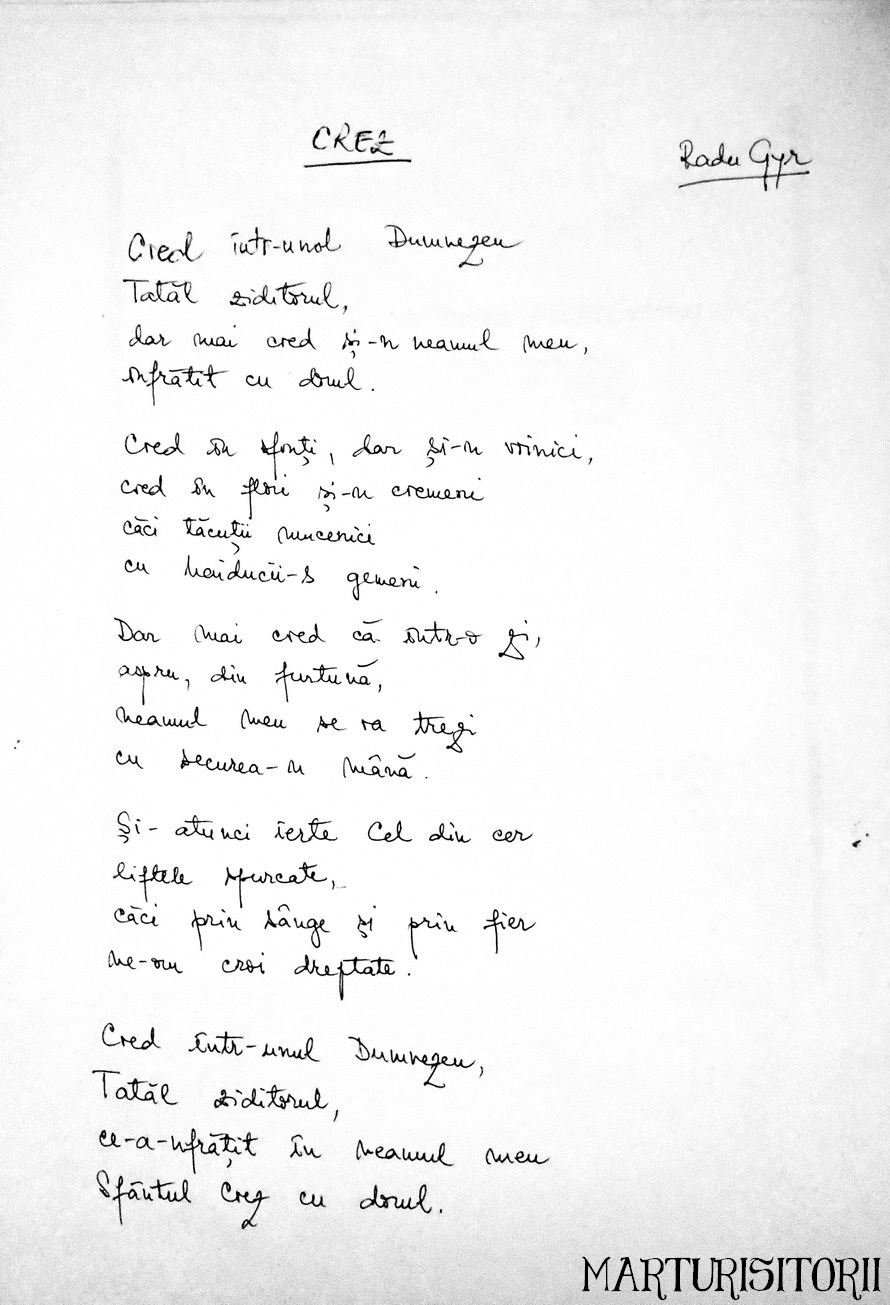 CREZ
Radu Gyr
Cred într-unol Dumnezeu
Tatăl ziditorul,
dar mai cred și-n neamul meu,
înfrătit cu dorul.
Cred în sfinți, dar și-n voinici,
cred în flori și-n cremeni
căci tăcuții mucenici
cu haiducii-s gemeni.
Dar mai cred că într-o zi,
aspru, din furtună,
neamul meu se va trezi
cu securea-n mână.
Și- atunci ierte Cel din cer
liftele spurcate,
căci prin sânge și prin fier
ne-om croi dreptate.
Cred într-unul Dumnezeu,
Tatăl ziditorul,
ce-a-nfrățit în neamul meu
Sfântul Crez cu dorul.
MARTURISITORII